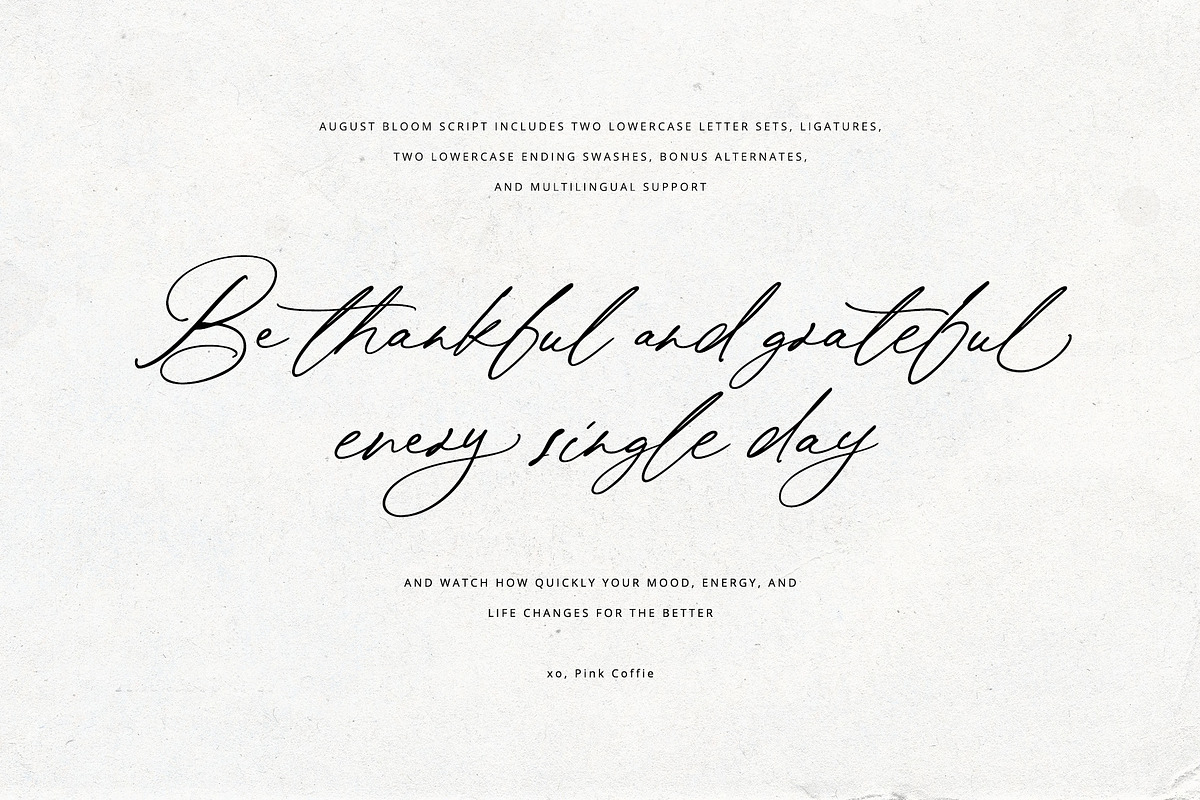 AUGUST BLOOM SCRIPT INCLUDES TWO LOWERCASE LETTER SETS, LIGATURES,
TWO LOWERCASE ENDING SWASHES, BONUS ALTERNATES,
AND MULTILINGUAL SUPPORT
Be thankful and grateful
every single day
AND WATCH HOW QUICKLY YOUR MOOD, ENERGY, AND
LIFE CHANGES FOR THE BETTER
xo, Pink Coffie